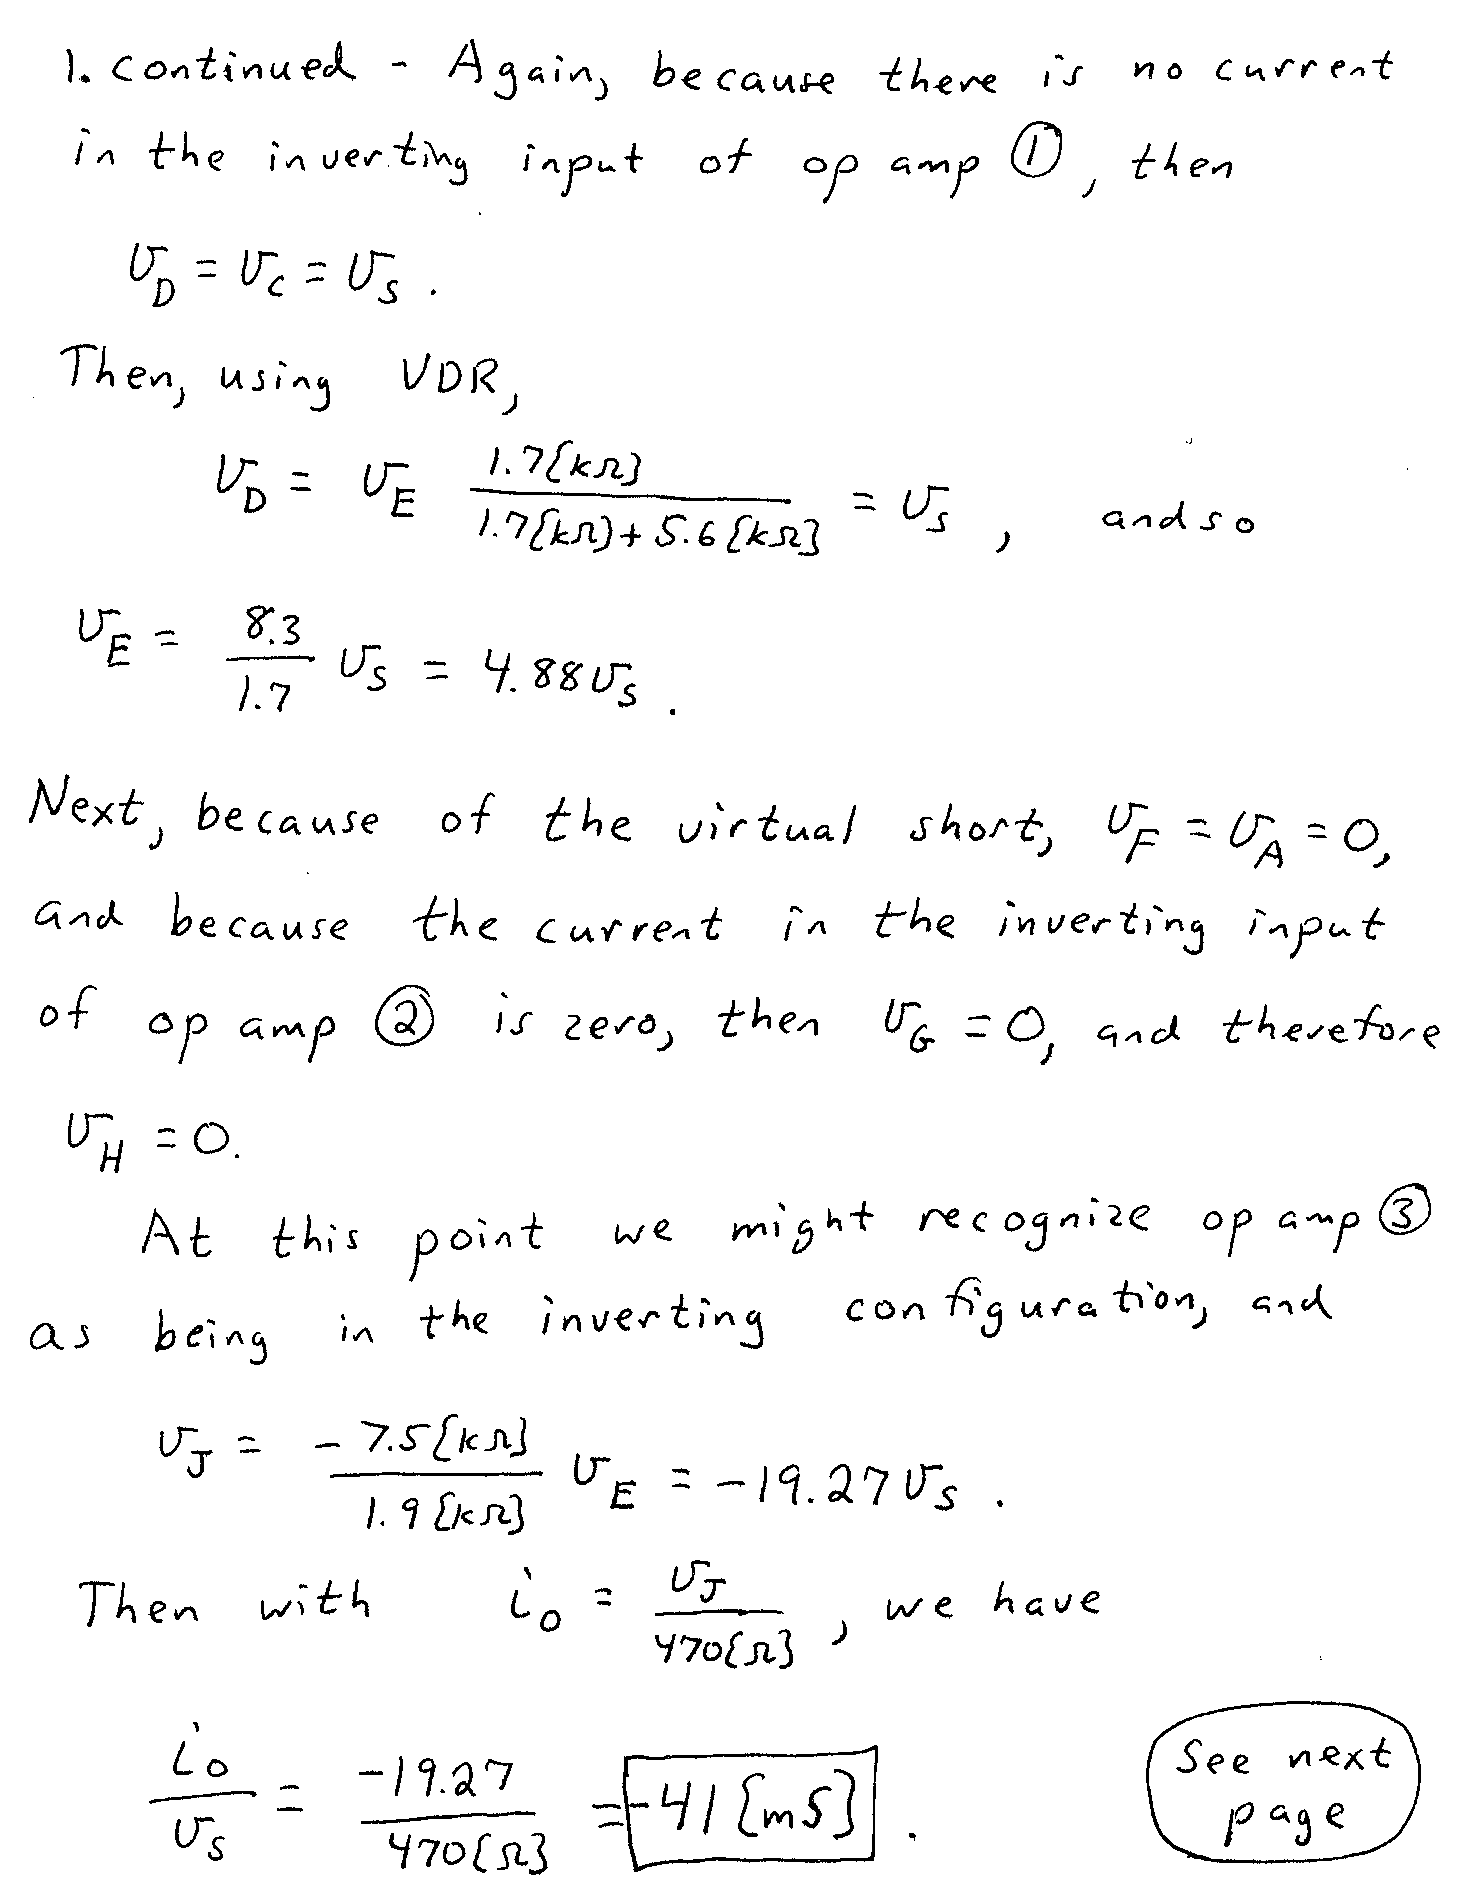 1. continued - Again, because there is no current
in the inverting input of op amp ①, then
v_D = v_C = v_S .
Then, using VDR,
v_D = v_E 1.7[kΩ] / 1.7[kΩ] + 5.6[kΩ] = v_S , and so
v_E = 8.3 / 1.7 v_S = 4.88 v_S .
Next, because of the virtual short, v_F = v_A = 0,
and because the current in the inverting input
of op amp ② is zero, then v_G = 0, and therefore
v_H = 0.
At this point we might recognize op amp ③
as being in the inverting configuration, and
v_J = - 7.5[kΩ] / 1.9[kΩ] v_E = -19.27 v_S .
Then with i_O = v_J / 470[Ω] , we have
i_O / v_S = -19.27 / 470[Ω] = -41 [mS] .
See next
page